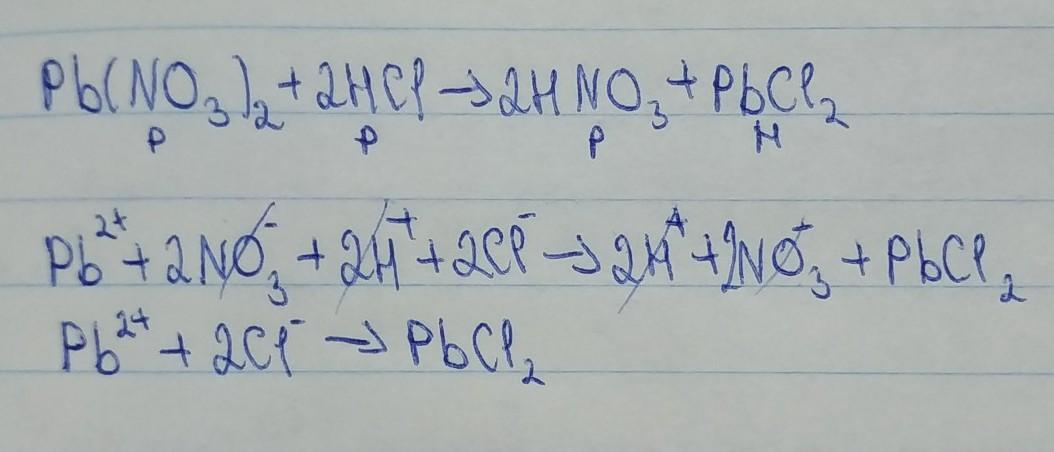 Pb(NO₃)₂ + 2HCl → 2HNO₃ + PbCl₂
р р р н
Pb²⁺ + 2NO₃⁻ + 2H⁺ + 2Cl⁻ → 2H⁺ + 2NO₃⁻ + PbCl₂
Pb²⁺ + 2Cl⁻ → PbCl₂